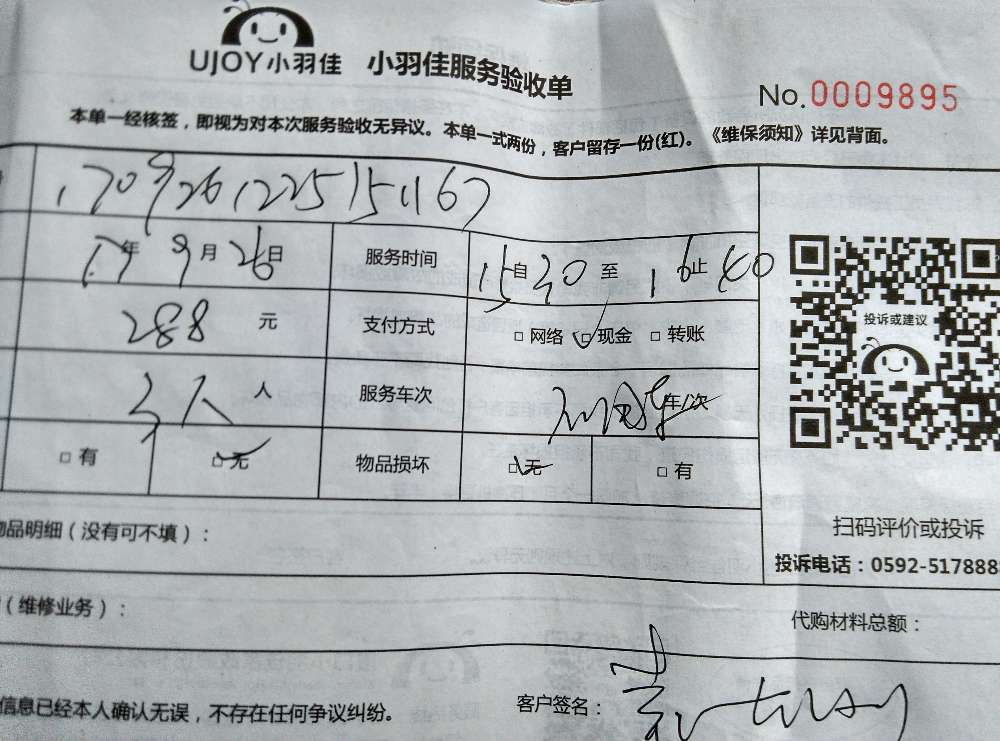 UJOY小羽佳 小羽佳服务验收单
No.0009895
本单一经核签，即视为对本次服务验收无异议。本单一式两份，客户留存一份(红)。《维保须知》详见背面。
1709261225151167
17年9月26日 服务时间 15自30至16止40
288元 支付方式 □网络 □现金 □转账
投诉或建议
3人 人 服务车次 车/次
□有 □无 物品损坏 □无 □有
物品明细（没有可不填）：
扫码评价或投诉
投诉电话：0592-517888
（维修业务）：
代购材料总额：
信息已经本人确认无误，不存在任何争议纠纷。 客户签名：